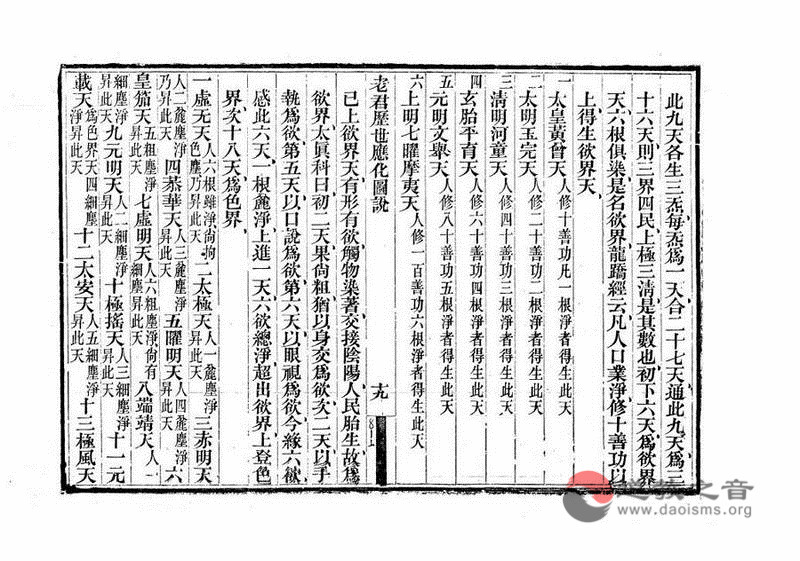 此九天各生三炁每炁爲一天合二十七天通此九天爲三
十六天則三界四民上極三淸是其數也初下六天爲欲界
天六根俱染是名欲界龍蹻經云凡人口業淨修十善功以
上得生欲界天
一 太皇黃曾天人修十善功凡一根淨者得生此天
二 太明玉完天人修二十善功二根淨者得生此天
三 淸明河童天人修四十善功三根淨者得生此天
四 玄胎平育天人修六十善功四根淨者得生此天
五 元明文舉天人修八十善功五根淨者得生此天
六 上明七曜摩夷天人修一百善功六根淨者得生此天
老君歷世應化圖說 十九
已上欲界天有形有欲觸物染著交接陰陽人民胎生故爲
欲界太眞科曰初二天果尙粗猶以身交爲欲次二天以手
執爲欲第五天以口說爲欲第六天以眼視爲欲今緣六欲
感此六天一根麄淨上進一天六欲總淨超出欲界上登色
界次十八天爲色界
一虛无天人六根雖淨尙拘色塵乃昇此天 二太極天人一麄塵淨昇此天 三赤明天
人二麄塵淨乃昇此天 四恭華天人三麄塵淨昇此天 五曜明天人四麄塵淨昇此天 六
皇笳天五粗塵淨昇此天 七虛明天人六粗塵淨尙有細塵昇此天 八端靖天人一
細塵淨昇此天 九元明天人二細塵淨昇此天 十極搖天人三細塵淨昇此天 十一元
載天爲色界天四細塵淨昇此天 十二太安天人五細塵淨昇此天 十三極風天
道教之音
www.daoisms.org